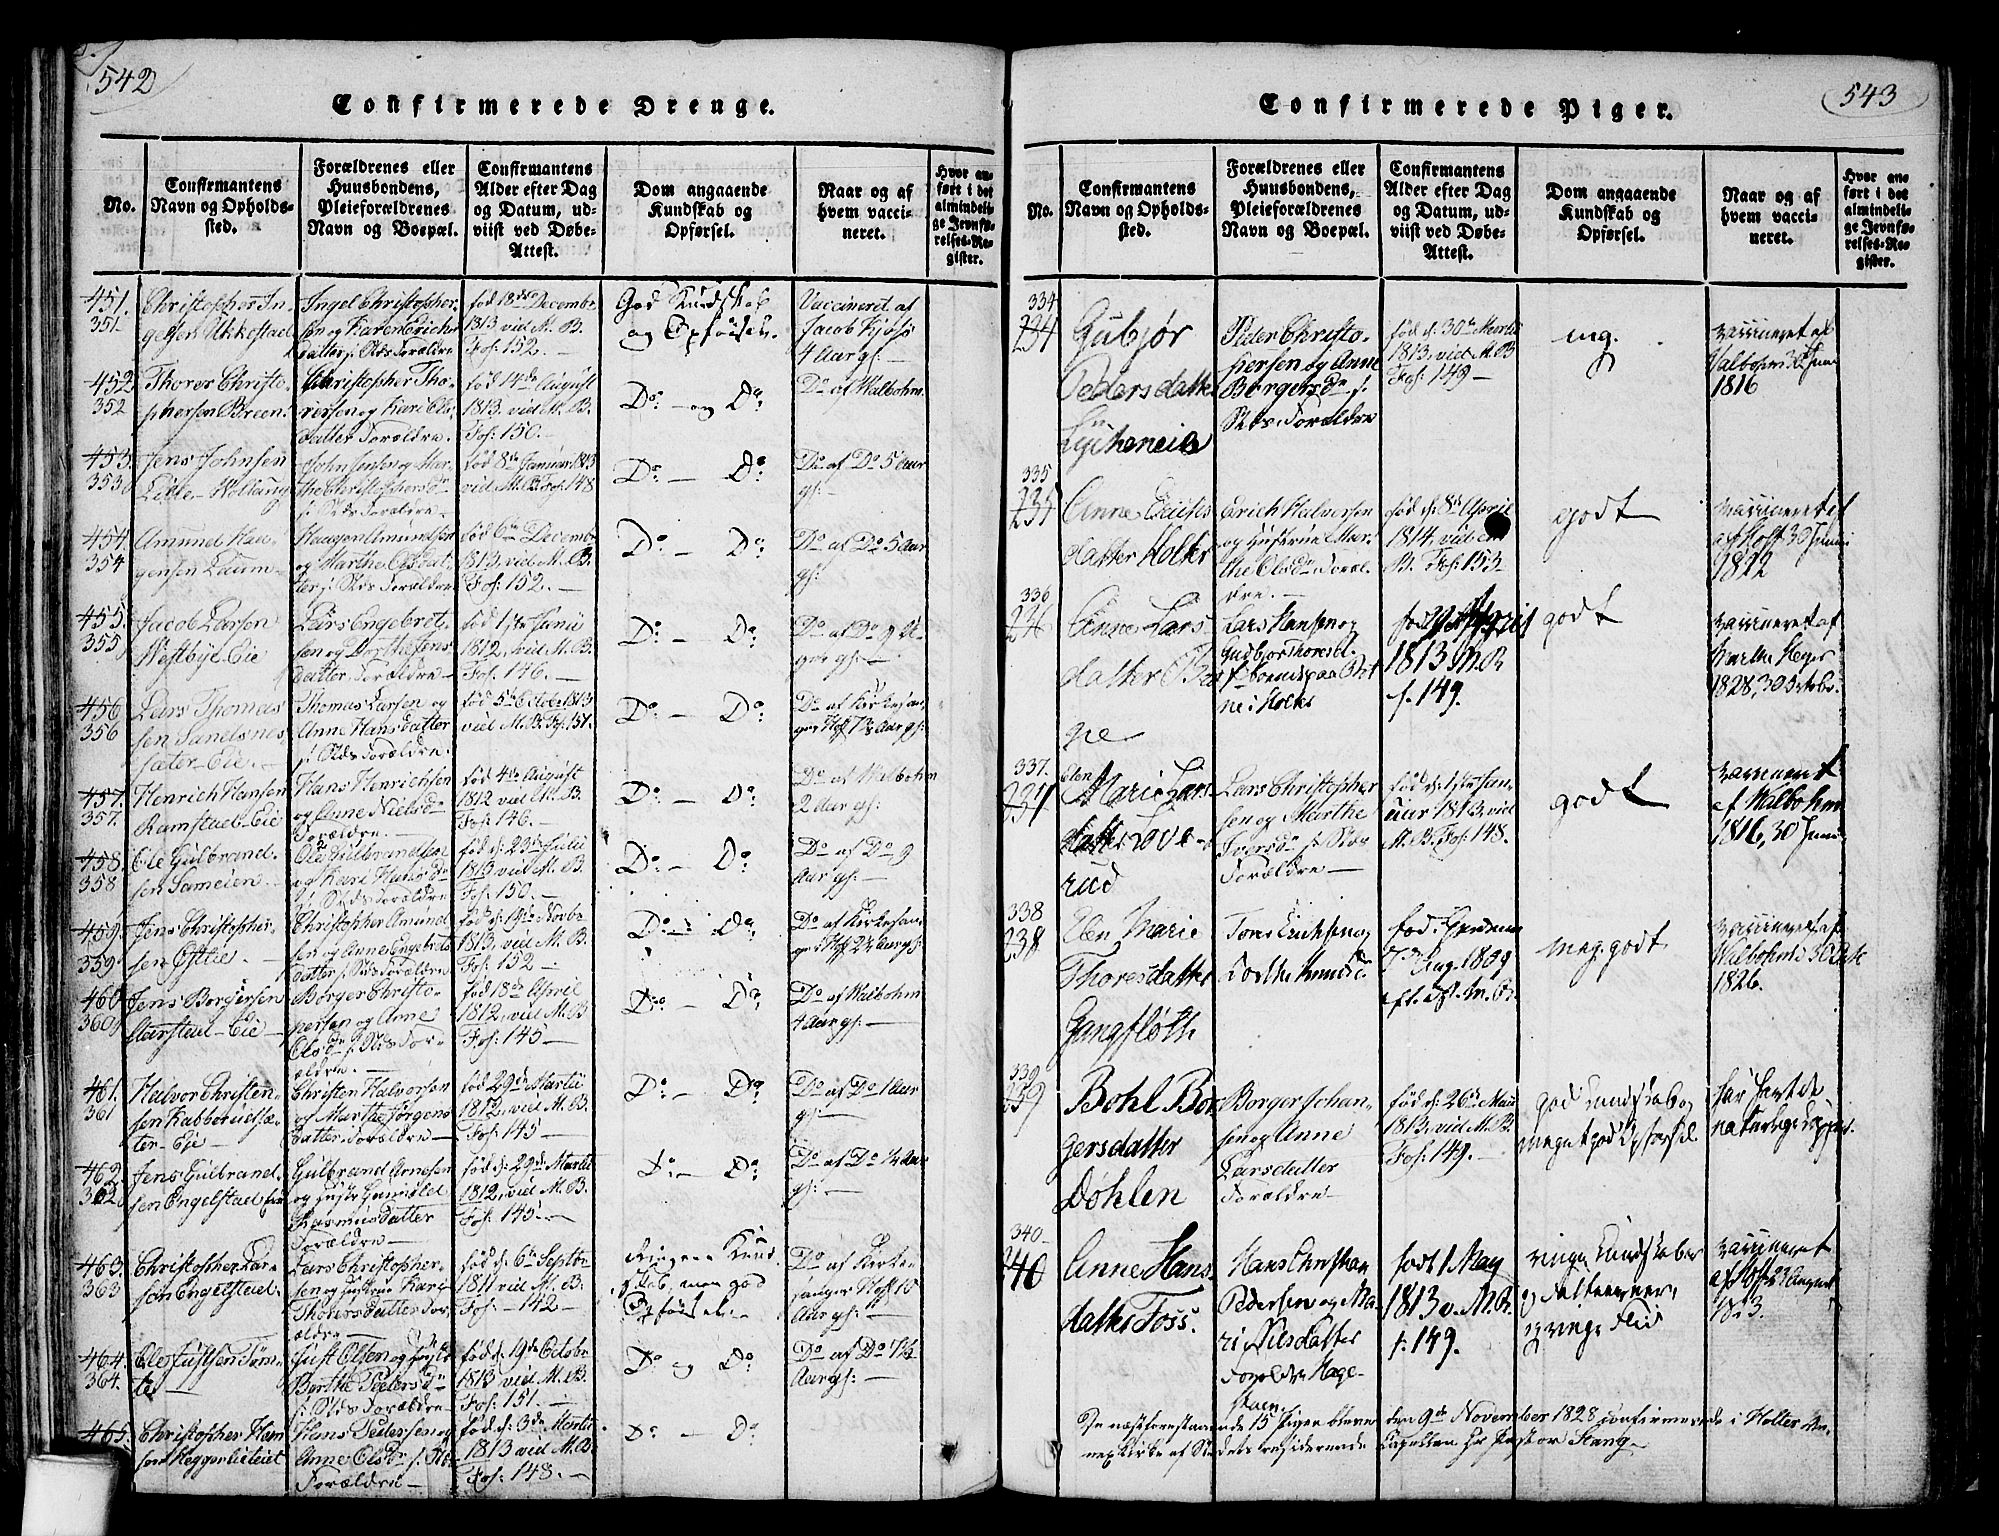 542
Confirmerede Drenge.
No.
Confirmantens
Navn og Opholds-
sted.
Forældrenes eller
Huusbondens,
Pleieforældrenes
Navn og Boepæl.
Confirmantens
Alder efter Dag
og Datum, ud-
viist ved Døbe-
Attest.
Dom angaaende
Kundskab og
Opførsel.
Naar og af
hvem vacci-
neret.
Hvor an-
ført i det
almindeli-
ge Jevnfø-
relses-Re-
gister.
451.
351.
Christopher In-
gelsen Ukkestad
Ingel Christopher-
sen og Karen Erichs
datter f: Sts Forældre
fød 18de Decembr
1813 vid M. B.
Fol: 152.
God Kundskab
og Opførsel.
Vaccineret af
Jacob Kjos
4 Aar gl:
452
352
Thorer Christo-
phersen Breen
Christopher Tho-
rersen og Kari Ols-
datter Forældre.
fød 14de August
1813. vid M. B.
Fol: 150.
Do: og Do:
Do af Walbohm
453.
353
Jens Johnsen
Lille-Wollaug
John Jensen og Mar-
the Christophersdr
f: Sts Forældre.
fød 8de Januar 1813
vid M. B. Fol: 148
Do: Do:
Do af Do 5 Aar
gl:
454.
354
Amund Haa-
gensen
Haagen Amundsen
og Marthe Olsdat-
ter f: Sts Forældre
fød 6te Decembr
1813, vid M. B.
Fol: 152.
Do: Do:
Do af Do 5 Aar
gl:
455.
355
Jacob Larsen
Westbye-Eie
Lars Engebret-
sen og Dorthe Jens
datter, Forældre
fød 1ste Junii
1812, vid M. B.
Fol: 146.
Do: Do:
Do af Do 9 A-
gar gl:
456
356
Lars Thomas
sen
sæter-Eie.
Thomas Larsen og
Anne Hansdatter
f: Sts Forældre.
fød 5te October 1813
vid M. B. Fol: 151.
Do: Do:
Do af Kirkesan-
ger Hoff 7½ Aar gl:
457.
357.
Henrich Hansen
Ramstad-Eie
Hans Henrichsen
og Anne Nielsdr
Forældre.
fød 4de August
1812 vid M. B.
Fol: 146.
Do: Do:
Do af Walbohm
2 Aar gl:
458.
358
Ole Gulbrand-
sen Sameien.
Ole Gulbrandsen
og Kari Hansdr
f: Sts Forældre.
fød d: 23de Julii
1813 vid M. B.
Fol: 150.
Do: Do:
Do af Do 9
Aar gl:
459.
359
Jens Christopher-
sen Østlie.
Christopher Amund
sen og Anne Engebrets
datter f: Sts Forældre
fød d: 19de Novbr
1813, vid M. B.
Fol: 152
Do: Do:
Do af Kirkesan-
ger Hoff 2½ Aar gl:
460.
360
Jens Borgersen
Aarstad-Eie
Borger Christo-
persen og Anne
Olsdr f: Sts For-
ældre.
fød 18de April
1812, vid M. B.
Fol: 145
Do: Do:
Do af Walbohm
4 Aar gl:
461.
361
Halvor Christen-
sen Kabberudsæ-
ter-Eie
Christen Halvorsen
og Marthe Jørgens
datter Forældre
fød 29de Martii
1812, vid M. B.
Fol: 145
Do: Do:
Do af Do 1 Aar
gl:
462.
362.
Jens Gulbrand-
sen Engelstad Eie
Gulbrand Arnesen
og Hustr Gunild
Rasmusdatter
Forældre
fød d: 29de Martii
1812, vid M. B.
Fol: 145.
Do: Do:
Do af Do ¼ Aar
gl:
463.
363
Christopher Lar-
sen Engelstad.
Lars Christopher-
sen og Hustrue Kari
Thorersdatter For-
ældre
fød d: 6te Septbr
1811 vid M. B.
Fol: 142
Ringere Kund
skab, men god
Opførsel.
Do af Kirke-
sanger Hoff 10
Aar gl:
464.
364.
Ole Justsen Tøm-
te
Just Olsen og Hustr
Berthe Pedersdr
f: Sts Forældre
fød d: 19de Octobr
1813 vid M. B.
Fol: 151.
Do og Do:
Do af Do 7½
Aar gl:
465.
Christopher Han
sen Heggerlieiet
Hans Pedersen og
Anne Olsdr f: Sts
Forældre
fød d: 3de Martii
1813 vid M. B.
Fol: 148.
Do: Do:
543
Confirmerede Piger.
No.
Confirmantens
Navn og Opholds-
sted.
Forældrenes eller
Huusbondens,
Pleieforældrenes
Navn og Boepæl.
Confirmantens
Alder efter Dag
og Datum, ud-
viist ved Døbe-
Attest.
Dom angaaende
Kundskab og
Opførsel.
Naar og af
hvem vacci-
neret.
Hvor an-
ført i det
almindeli-
ge Jevnfø-
relses-Re-
gister.
334
234
Gubjør
Pedersdatter
Lycheneie
Peder Christo-
phersen og Anne
Borgersdr f:
Sts Forældre
fød d: 30te Martii
1813, vid M. B
Fol: 149
mg.
vaccineret af
Valbohm 30 Juni
1816
335
235
Anne Erichs
datter Holter
Erich Halvorsen
og Hustrue Mar-
the Olsdr Foræl-
dre.
fød d: 8de April
1814, vid M.
B. Fol: 153
godt
vaccineret af
af Hoff 30 Juni
1822
336
236
Anne Lars-
datter
Lars Hansen og
Gudbjør Thoresd.
ne i Holter
1813 M. B
f. 149.
godt
vaccineret af
Marthe Heyer
1828, 30 Octobr.
337.
237
Elen
Marie Lars-
datter Løve-
rud
Lars Christopher
sen og Marthe
Iversdr f: Sts
Forældre
fød d: 1ste Jan-
uar 1813, vid
M. B. Fol: 148.
godt
vaccineret
af Walbohm
1816, 30 Juni
338
238
Elen Marie
Thoresdatter
Gangfløth
Tores Erichsen og
Dorthe Knudsd.
7 Aug. 1809
meg. godt
vaccineret af
Walbohm 30 Octb
1826.
339
239
Bohl Bor
gersdatter
Døhlen
Borger Johan-
sen og Anne
Larsdatter
Forældre
fød d: 26de Maii
1813, vid M. B.
Fol: 149.
god Kundskab og
meget god Opførsel
har havt de
naturlige Kopper.
340
240
Anne Hans-
datter Foss.
Hans Christian
Pedersen og Ma-
ri Nilsdatter
Forældre Hage-
stuen.
født 1 May
1813 v. M. B.
f. 149.
ringe Kundskaber
ringe Flid
vaccineret
af Hoff 23 August
1823.
De næstforestaaende 15 Piger bleve den 9de November 1828 confirmerede i Holter An-
nexkirke af Stedets residerende Capellan Hr Pastor Stang